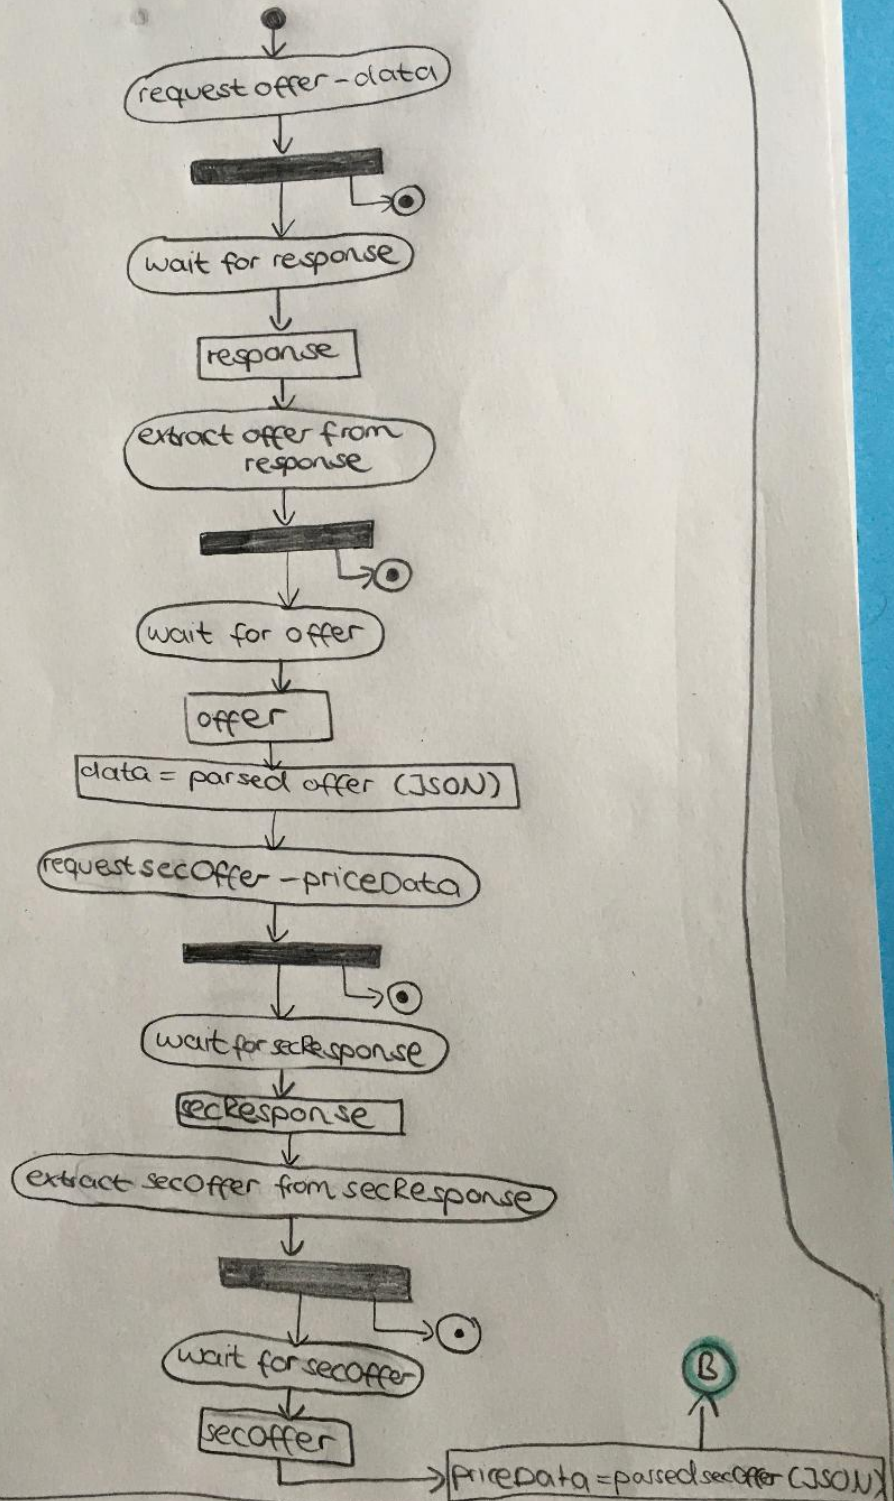 request offer-data
wait for response
response
extract offer from
response
wait for offer
offer
data = parsed offer (JSON)
request secOffer-priceData
wait for secResponse
secResponse
extract secOffer from secResponse
wait for secOffer
secOffer
B
priceData = parsed secOffer (JSON)